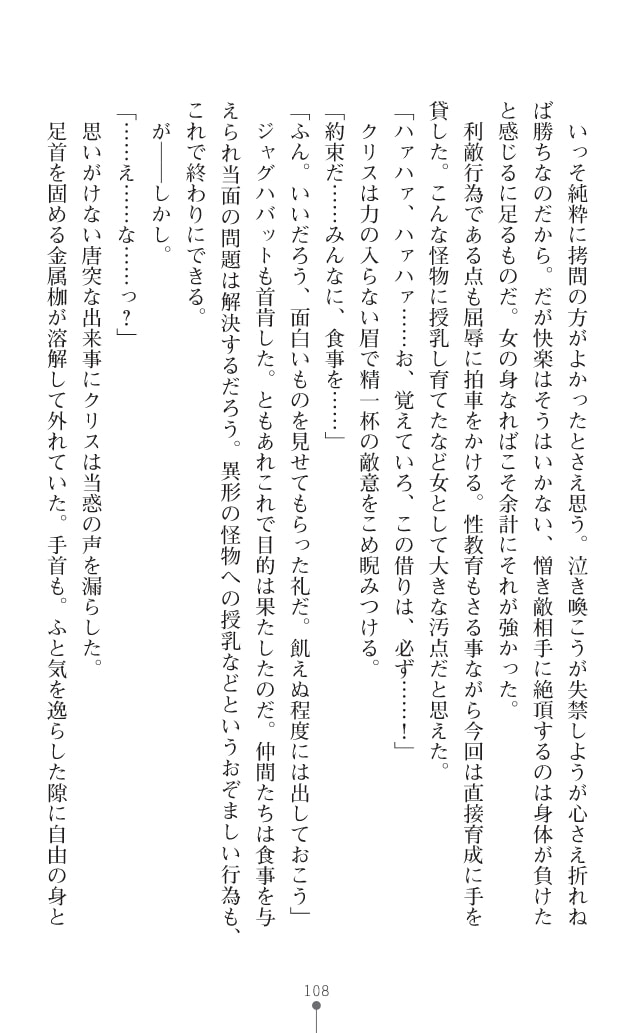 いっそ純粋に拷問の方がよかったとさえ思う。泣き喚こうが失禁しようが心さえ折れね
ば勝ちなのだから。だが快楽はそうはいかない、憎き敵相手に絶頂するのは身体が負けた
と感じるに足るものだ。女の身なればこそ余計にそれが強かった。
利敵行為である点も屈辱に拍車をかける。性教育もさる事ながら今回は直接育成に手を
貸した。こんな怪物に授乳し育てたなど女として大きな汚点だと思えた。
「ハァハァ、ハァハァ……お、覚えていろ、この借りは、必ず……！」
クリスは力の入らない眉で精一杯の敵意をこめ睨みつける。
「約束だ……みんなに、食事を……」
「ふん。いいだろう、面白いものを見せてもらった礼だ。飢えぬ程度には出しておこう」
ジャグハバットも首肯した。ともあれこれで目的は果たしたのだ。仲間たちは食事を与
えられ当面の問題は解決するだろう。異形の怪物への授乳などというおぞましい行為も、
これで終わりにできる。
が――しかし。
「……え……な……っ？」
思いがけない唐突な出来事にクリスは当惑の声を漏らした。
足首を固める金属枷が溶解して外れていた。手首も。ふと気を逸らした隙に自由の身と
108